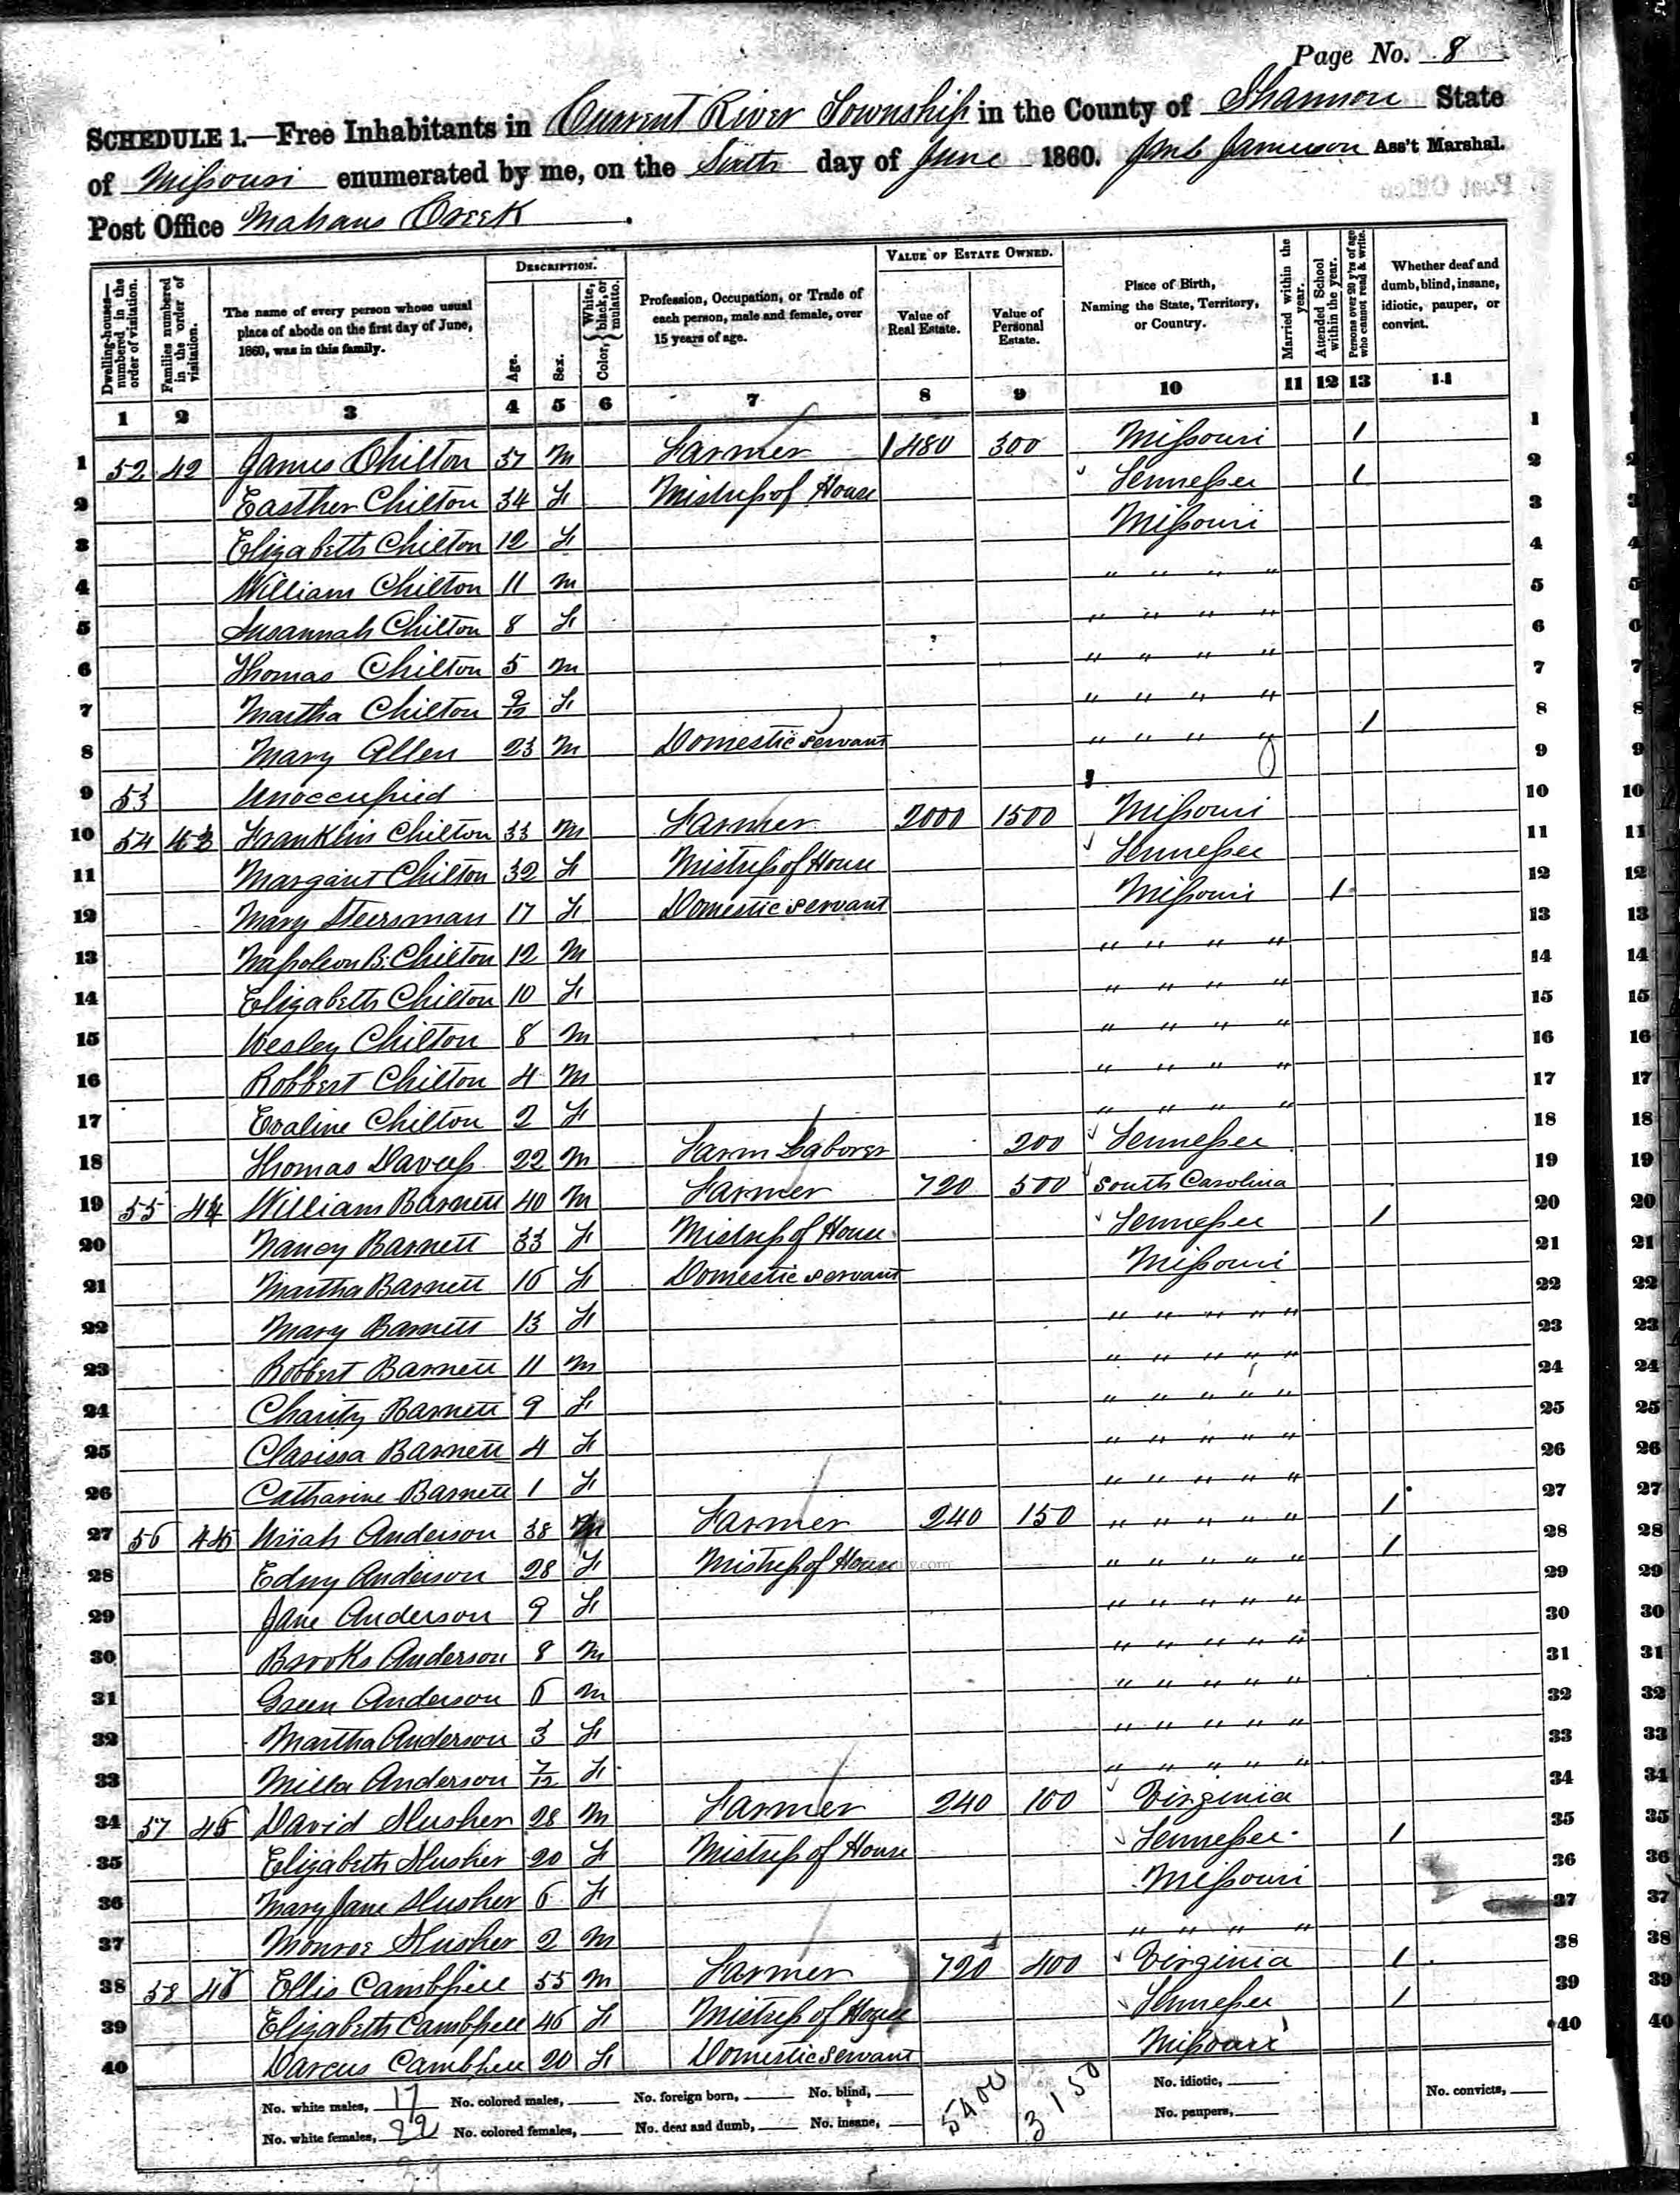 Page No. 8
SCHEDULE 1.—Free Inhabitants in Current River Township in the County of Shannon State
of Missouri enumerated by me, on the Sixth day of June 1860. Jamerson Ass't Marshal.
Post Office Mahans Creek.
DESCRIPTION. VALUE OF ESTATE OWNED.
Dwelling-houses—numbered in the order of visitation. Families numbered in the order of visitation. The name of every person whose usual place of abode on the first day of June, 1860, was in this family. Age. Sex. Color, White, black, or mulatto. Profession, Occupation, or Trade of each person, male and female, over 15 years of age. Value of Real Estate. Value of Personal Estate. Place of Birth, Naming the State, Territory, or Country. Married within the year. Attended School within the year. Persons over 20 y'rs of age who cannot read & write. Whether deaf and dumb, blind, insane, idiotic, pauper, or convict.
1 2 3 4 5 6 7 8 9 10 11 12 13 14
1 52 42 James Chilton 37 M Farmer 1480 300 Missouri / 1
2 Easther Chilton 34 F Mistress of House Tennessee / 2
3 Elizabeth Chilton 12 F Missouri 3
4 William Chilton 11 M " " " " 4
5 Susannah Chilton 8 F " " " " 5
6 Thomas Chilton 5 M " " " " 6
7 Martha Chilton 9/12 F " " " " 7
8 Mary Allen 23 M Domestic servant " " " " / 8
9 53 Unoccupied 9
10 54 43 Franklin Chilton 33 M Farmer 2000 1500 Missouri 10
11 Margaret Chilton 32 F Mistress of House Tennessee 11
12 Mary Steersman 17 F Domestic servant Missouri / 12
13 Napoleon B. Chilton 12 M " " " " 13
14 Elizabeth Chilton 10 F " " " " 14
15 Wesley Chilton 8 M " " " " 15
16 Robbert Chilton 4 M " " " " 16
17 Evaline Chilton 2 F " " " " 17
18 Thomas Davess 22 M Farm Laborer 200 Tennessee 18
19 55 44 William Barnett 40 M Farmer 720 500 South Carolina 19
20 Nancy Barnett 33 F Mistress of House Tennessee / 20
21 Martha Barnett 16 F Domestic servant Missouri 21
22 Mary Barnett 13 F " " " " " 22
23 Robbert Barnett 11 M " " " " " 23
24 Charity Barnett 9 F " " " " " 24
25 Clarissa Barnett 4 F " " " " " 25
26 Catharine Barnett 1 F " " " " " 26
27 56 45 Uriah Anderson 38 M Farmer 240 150 " " " " " / 27
28 Edny Anderson 28 F Mistress of House " " " " " / 28
29 Jane Anderson 9 F " " " " " 29
30 Brooks Anderson 8 M " " " " " 30
31 Green Anderson 6 M " " " " " 31
32 Martha Anderson 3 F " " " " " 32
33 Milla Anderson 7/12 F " " " " " 33
34 57 46 David Slusher 28 M Farmer 240 100 Virginia 34
35 Elizabeth Slusher 20 F Mistress of House Tennessee / 35
36 Mary Jane Slusher 6 F Missouri 36
37 Monroe Slusher 2 M " " " " 37
38 58 47 Ellis Cambpell 55 M Farmer 720 400 Virginia / 38
39 Elizabeth Cambpell 46 F Mistress of House Tennessee / 39
40 Darcus Cambpell 20 F Domestic servant Missouri 40
No. white males, 17 No. colored males, No. foreign born, No. blind, 5400 3150 No. idiotic, No. convicts,
No. white females, 22 No. colored females, No. deaf and dumb, No. insane, No. paupers,
39